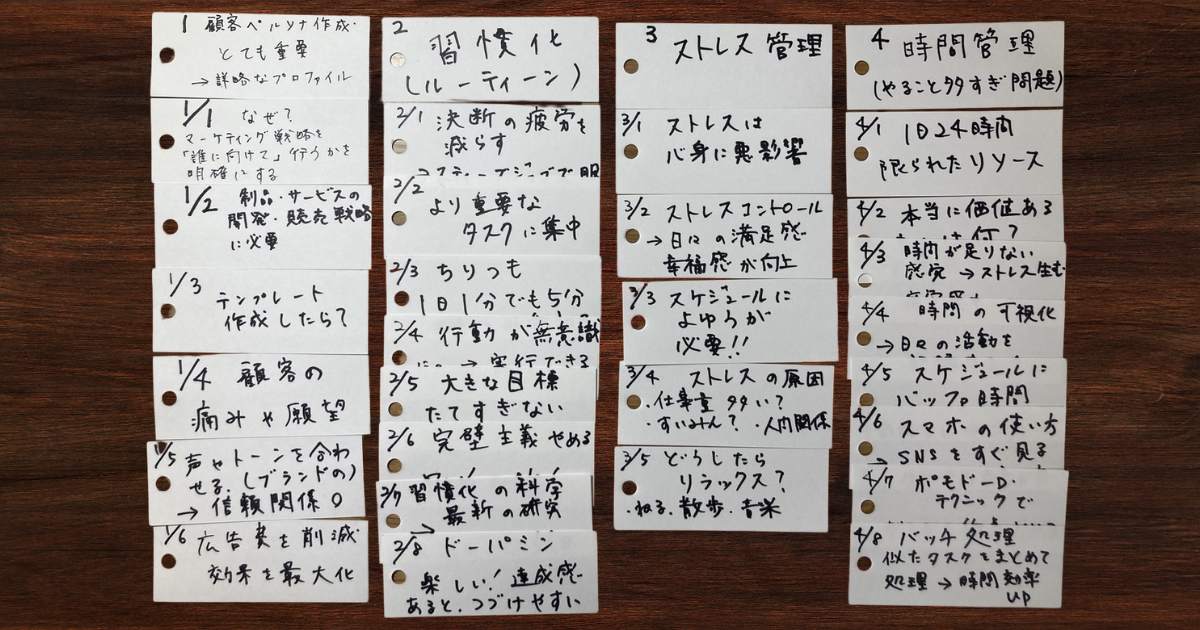 1 顧客ペルソナ作成.
とても重要
→詳略なプロファイル
1/1 なぜ?
マーケティング戦略を
「誰に向けて」行うかを
明確にする
1/2 制品・サービスの
開発・販売戦略
に必要
1/3
テンプレート
作成したら?
1/4 顧客の
痛みや願望
1/5 声やトーンを合わ
せる.(ブランドの)
→信頼関係○
1/6 広告費を削減
効果を最大化
2
習慣化
(ルーティーン)
2/1 決断の疲労を
減らす
2/2
より重要な
タスクに集中
2/3 ちりつも
1日1分でも5分
2/4 行動が無意識
→実行できる
2/5 大きな目標
たてすぎない
2/6 完壁主義やめる
2/7 習慣化の科学
→最新の研究
2/8 ドーパミン
楽しい!達成感
あると、つづけやすい
3
ストレス管理
3/1 ストレスは
心身に悪影響
3/2 ストレスコントロール
→日々の満足感
幸福感が向上
3/3 スケジュールに
よゆうが
必要!!
3/4 ストレスの原因
・仕事量多い?
・すいみん?・人間関係
3/5 どうしたら
リラックス?
・ねる・散歩・音楽
4 時間管理
(やること多すぎ問題)
4/1 1日24時間
限られたリソース
4/2 本当に価値ある
は何?
4/3 時間が足りない
感覚→ストレス生む
4/4 時間の可視化
→日々の活動を
4/5 スケジュールに
バッファ時間
4/6 スマホの使い方
→SNSをすぐ見る
4/7 ポモドーロ・
テクニックで
4/8 バッチ処理
似たタスクをまとめて
処理→時間効率
up